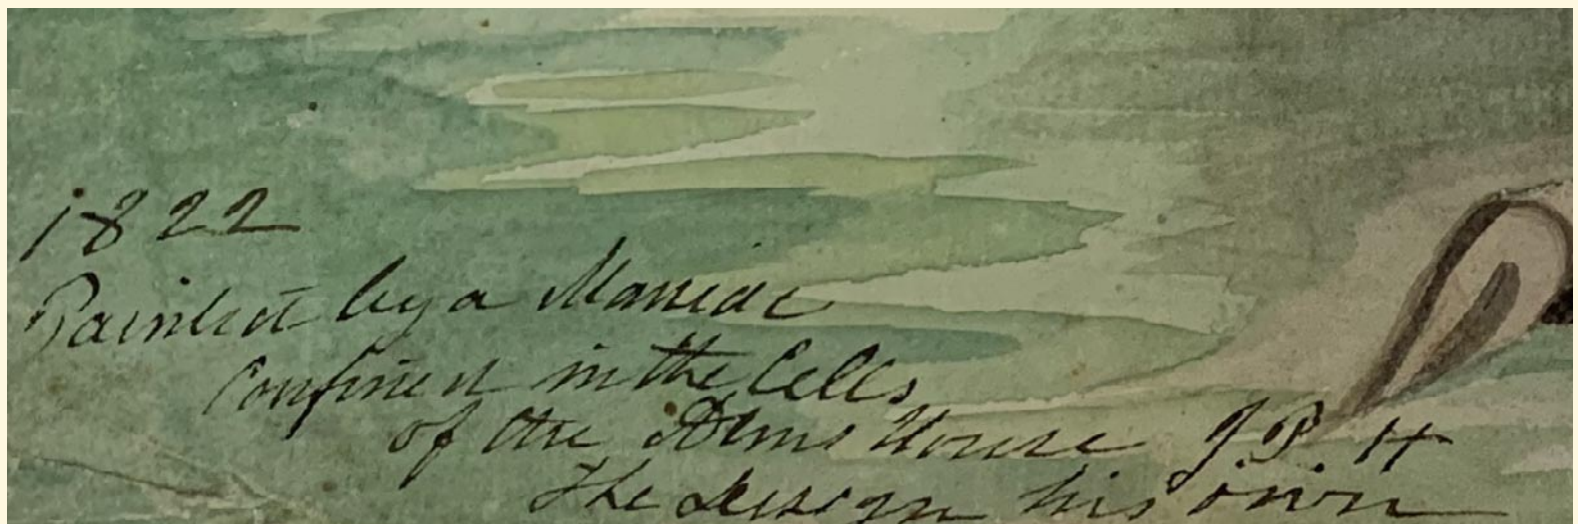 1822
Painted by a Maniac
Confined in the Cells
of the Alms House J P H
The design his own